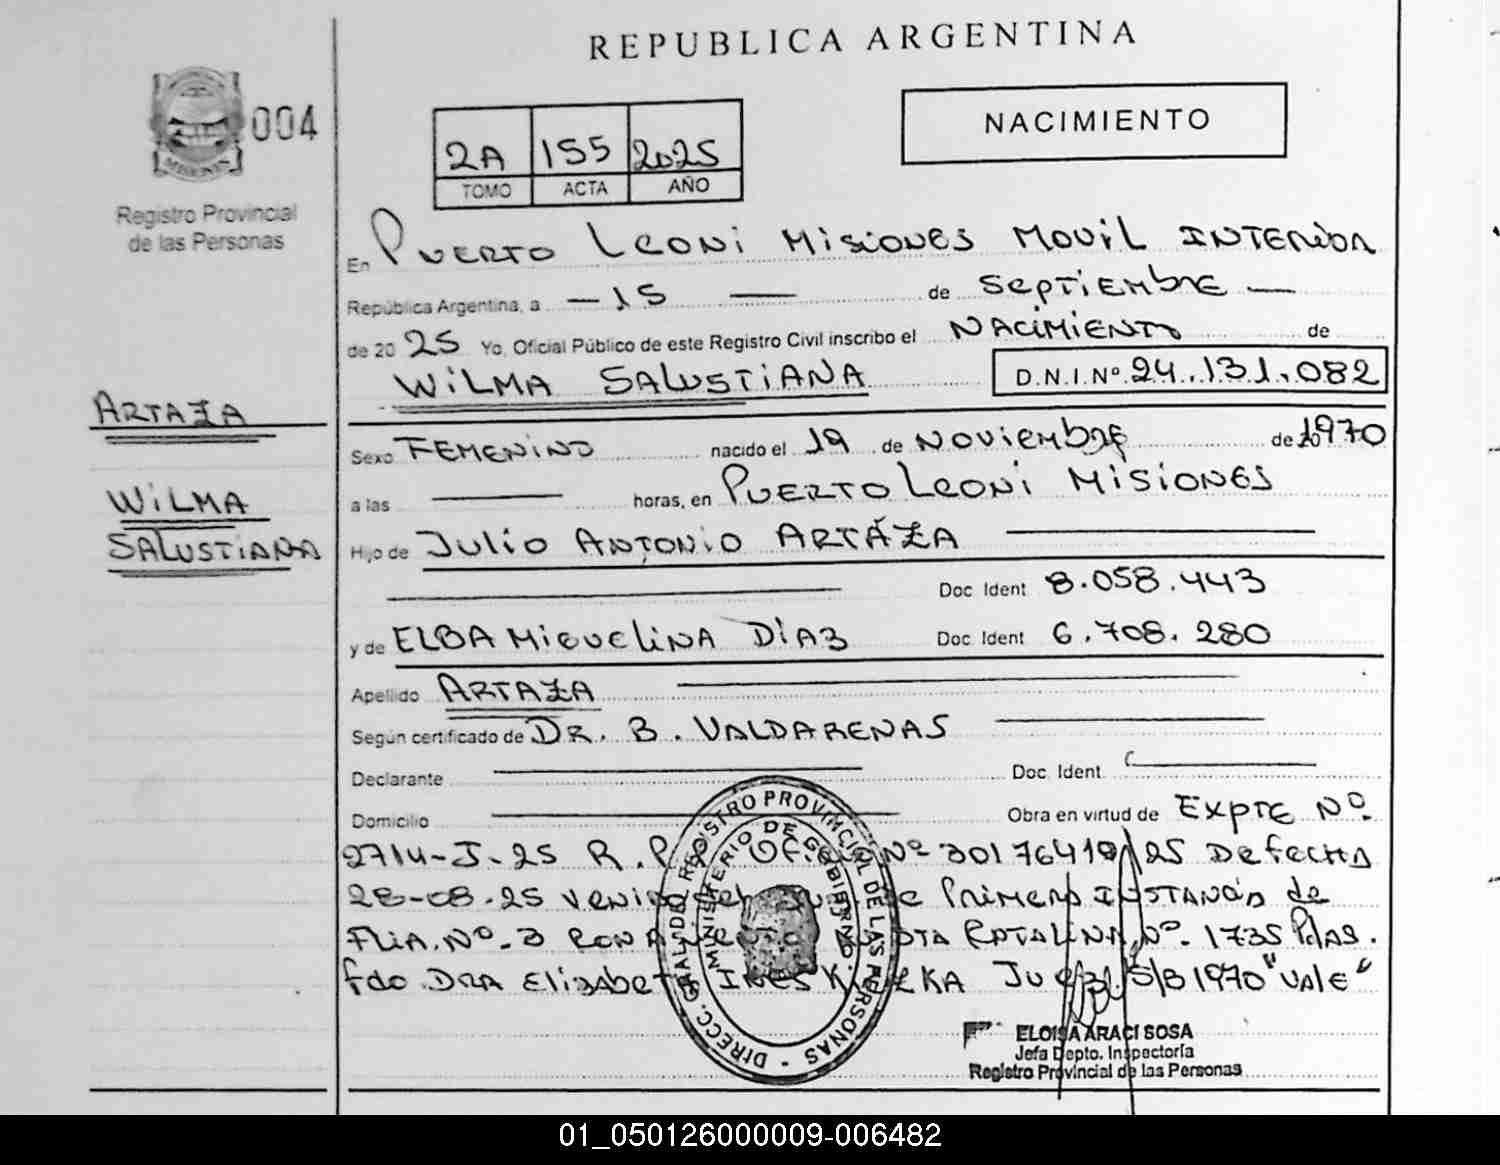 REPUBLICA ARGENTINA
004
MISIONES
Registro Provincial
de las Personas
2A 155 2025
TOMO ACTA AÑO
NACIMIENTO
En PUERTO LEONI MISIONES MOVIL INTERIOR
República Argentina, a — 15 — de SEPTIEMBRE —
de 2025 Yo, Oficial Público de este Registro Civil inscribo el NACIMIENTO de
WILMA SALUSTIANA D.N.I.Nº 24.131.082
ARTAZA
WILMA
SALUSTIANA
Sexo FEMENINO nacido el 19 de NOVIEMBRE de 1970
a las horas, en PUERTO LEONI MISIONES
Hijo de JULIO ANTONIO ARTÁZA
Doc Ident 8.058.443
y de ELBA MIGUELINA DIAZ Doc Ident 6.708.280
Apellido ARTAZA
Según certificado de DR. B. VALDARENAS
Declarante Doc. Ident
Domicilio Obra en virtud de EXPTE Nº
2714-J-25 R.P. Nº /25 DE FECHA
28-08-25 PRIMERA INSTANCIA de
FLIA. Nº.3 Nº. 1735 Pdas.
fdo. DRA ELIZABET INES S/B 1970 "VALE"
DIRECC. GRAL. DEL REGISTRO PROVINCIAL DE LAS PERSONAS -
MINISTERIO DE GOBIERNO
ELOISA ARACI SOSA
Jefa Depto. Inspectoría
Registro Provincial de las Personas
01_050126000009-006482